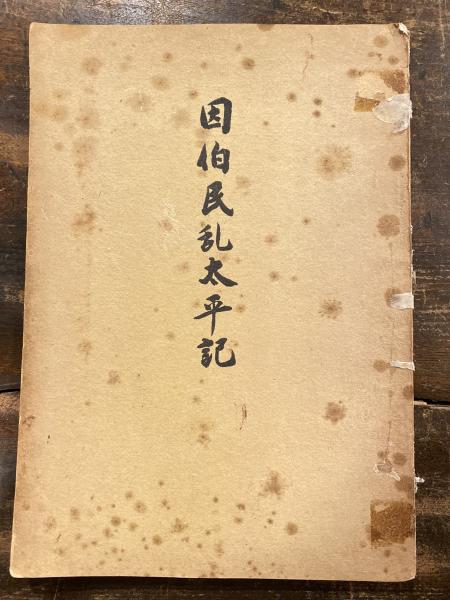 因伯民乱太平記